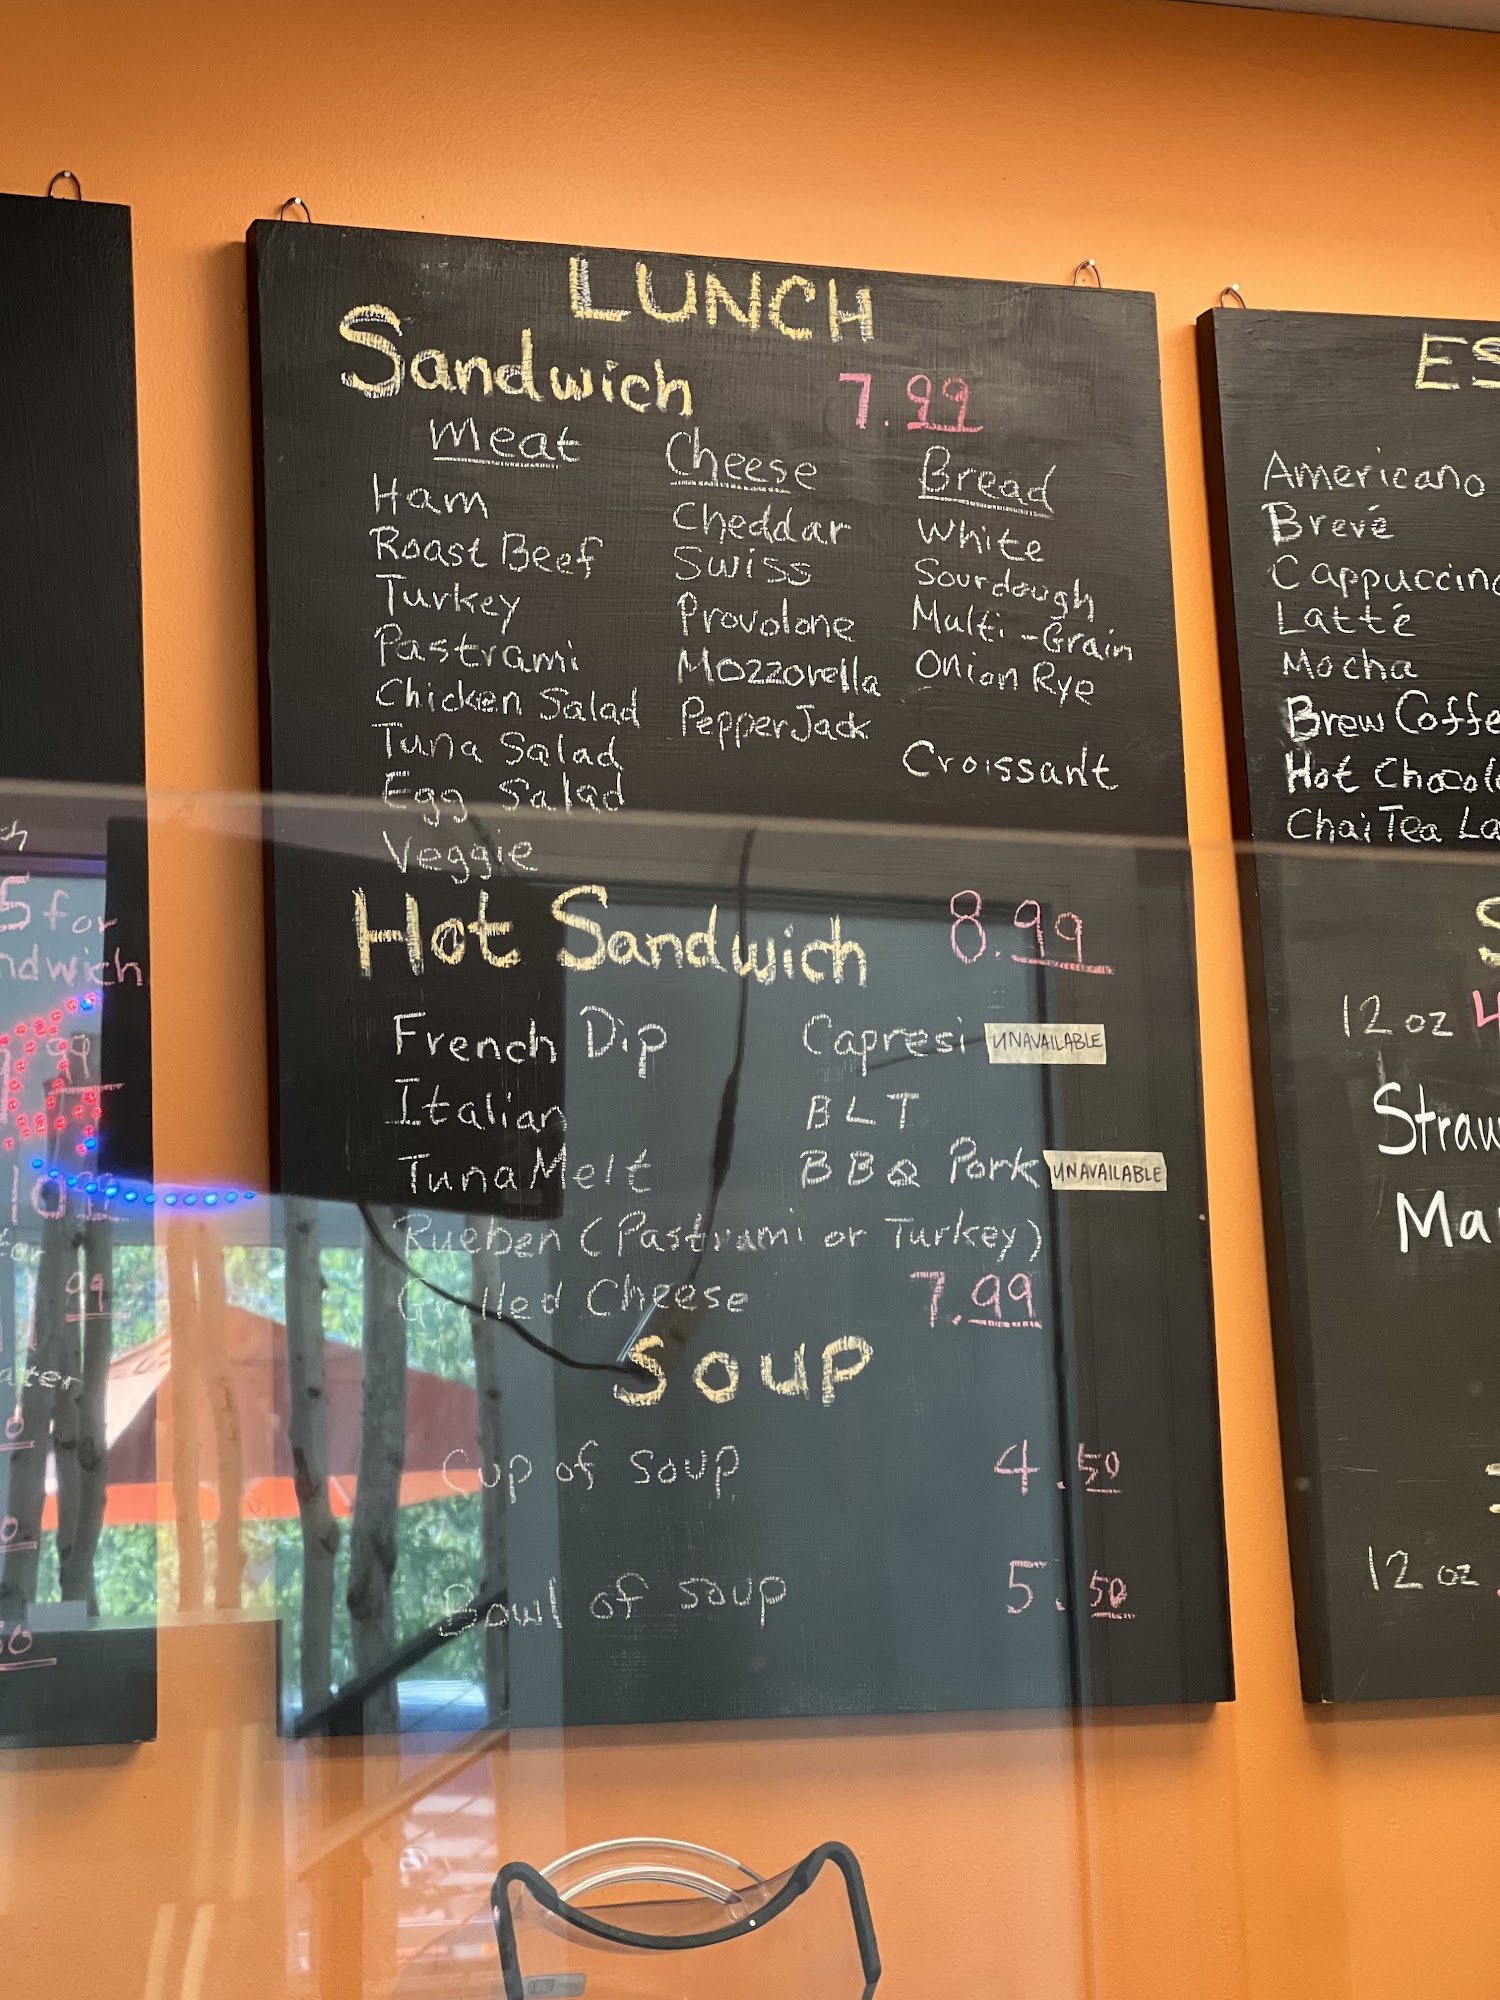 LUNCH
Sandwich 7.99
Meat Cheese Bread
Ham Cheddar White
Roast Beef Swiss Sourdough
Turkey Provolone Multi-Grain
Pastrami Mozzorella Onion Rye
Chicken Salad Pepper Jack
Tuna Salad Croissant
Egg Salad
Veggie
Hot Sandwich 8.99
French Dip Capresi UNAVAILABLE
Italian BLT
Tuna Melt BBQ Pork UNAVAILABLE
Rueben (Pastrami or Turkey)
Grilled Cheese 7.99
Soup
Cup of soup 4.50
Bowl of soup 5.50
5 for
99
99
50
ES
Americano
Brevé
Cappuccino
Latté
Mocha
Brew Coffe
Hot Chocol
Chai Tea La
S
12 oz 4
Straw
Ma
12 oz